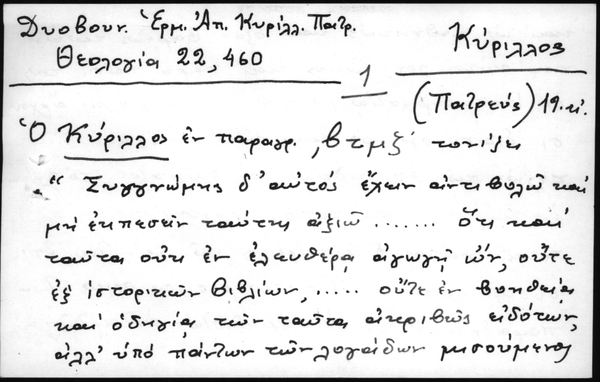 Δυοβουν. Ἑρμ. Ἀπ. Κυρίλλ. Πατρ.
Θεολογία 22, 460
Κύριλλος
1
(Πατρεύς) 19. αἰ.
Ὁ Κύριλλος ἐν παραγρ. ͵βτμξʹ τονίζει
"Συγγνώμης δ' αὐτός ἔχειν ἀντιβολῶ καί
μή ἐκπεσεῖν ταύτης ἀξιῶ ....... ὅτι καί
ταῦτα οὔτε ἐν ἐλευθέρᾳ ἀγωγῇ ὤν, οὔτε
ἐξ ἱστορικῶν βιβλίων, ..... οὔτε ἐν βοηθείᾳ
καί ὁδηγίᾳ τῶν ταῦτα ἀκριβῶς εἰδότων,
ἀλλ' ὑπό πάντων τῶν λογάδων μισούμενος